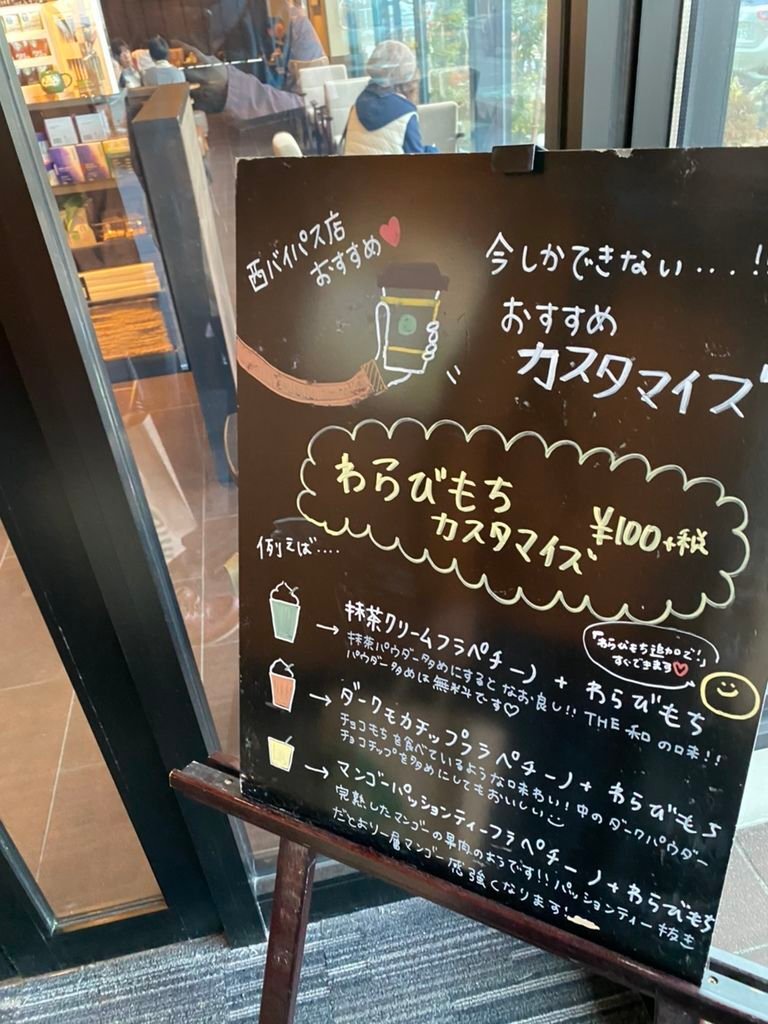 西バイパス店
おすすめ
今しかできない...!!
おすすめ
カスタマイズ
わらびもち
カスタマイズ
¥100+税
例えば....
→抹茶クリームフラペチーノ + わらびもち
「わらびもち追加で!」
すぐできます
抹茶パウダー多めにするとなお良し!! THE 和 の味!!
パウダー多めは無料です♡
→ダークモカチップフラペチーノ + わらびもち
チョコもちを食べているような味わい! 中のダークパウダー
チョコチップを多めにしてもおいしい
→マンゴーパッションティーフラペチーノ + わらびもち
完熟したマンゴーの果肉のようです!! パッションティー抜き
だとより一層マンゴー感強くなります!